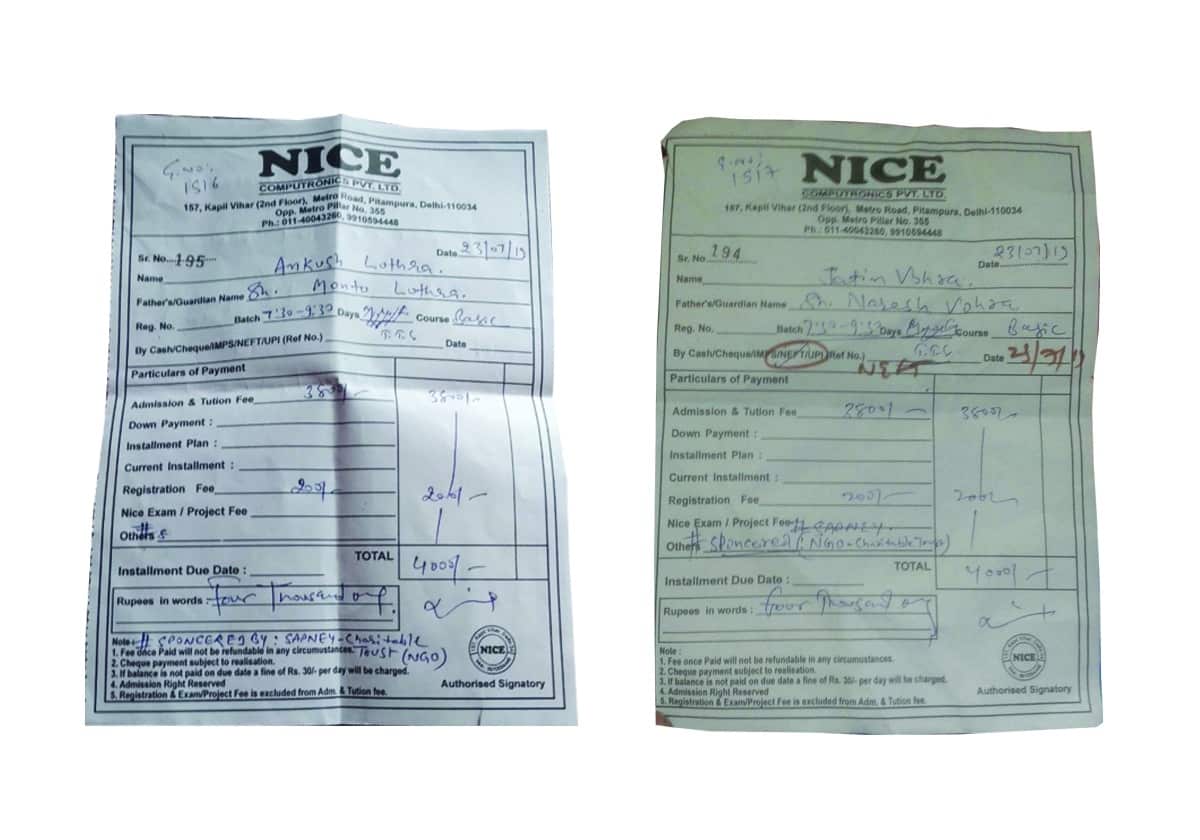 G.No:
1516
NICE
COMPUTRONICS PVT. LTD.
157, Kapil Vihar (2nd Floor), Metro Road, Pitampura, Delhi-110034
Opp. Metro Pillar No. 355
Ph.: 011-40043260, 9910594448
Sr. No. 195 Date 23/07/19
Name Ankush Lothra.
Father's/Guardian Name Sh. Montu Lothra.
Reg. No. Batch 7:30-9:30 Days Course Basic
T.T.S
By Cash/Cheque/IMPS/NEFT/UPI (Ref No.) Date
Particulars of Payment
Admission & Tution Fee 3800/- 3800/-
Down Payment :
Installment Plan :
Current Installment :
Registration Fee 200/- 200/-
Nice Exam / Project Fee
Others
TOTAL
Installment Due Date : 4000/-
Rupees in words : Four Thousand only.
Note :- # SPONCERED BY : SAPNEY - Charitable
1. Fee once Paid will not be refundable in any circumstances. Trust (NGO)
2. Cheque payment subject to realisation.
3. If balance is not paid on due date a fine of Rs. 30/- per day will be charged.
4. Admission Right Reserved
5. Registration & Exam/Project Fee is excluded from Adm. & Tution fee.
NICE
Authorised Signatory
G.No:
1517
NICE
COMPUTRONICS PVT. LTD.
157, Kapil Vihar (2nd Floor), Metro Road, Pitampura, Delhi-110034
Opp. Metro Pillar No. 355
Ph.: 011-40043260, 9910594448
Sr. No. 194 Date 23/07/19
Name Jatin Vohra.
Father's/Guardian Name Sh. Naresh Vohra
Reg. No. Batch 7:30-9:30 Days Course Basic
T.T.S
By Cash/Cheque/IMPS/NEFT/UPI (Ref No.) NEFT Date 23/7/19
Particulars of Payment
Admission & Tution Fee 3800/- 3800/-
Down Payment :
Installment Plan :
Current Installment :
Registration Fee 200/- 200/-
Nice Exam / Project Fee # SAPNEY.
Others # Sponcered (NGO-Charitable Trust)
TOTAL
Installment Due Date : 4000/-
Rupees in words : Four Thousand only
Note :
1. Fee once Paid will not be refundable in any circumstances.
2. Cheque payment subject to realisation.
3. If balance is not paid on due date a fine of Rs. 30/- per day will be charged.
4. Admission Right Reserved
5. Registration & Exam/Project Fee is excluded from Adm. & Tution fee.
NICE
Authorised Signatory